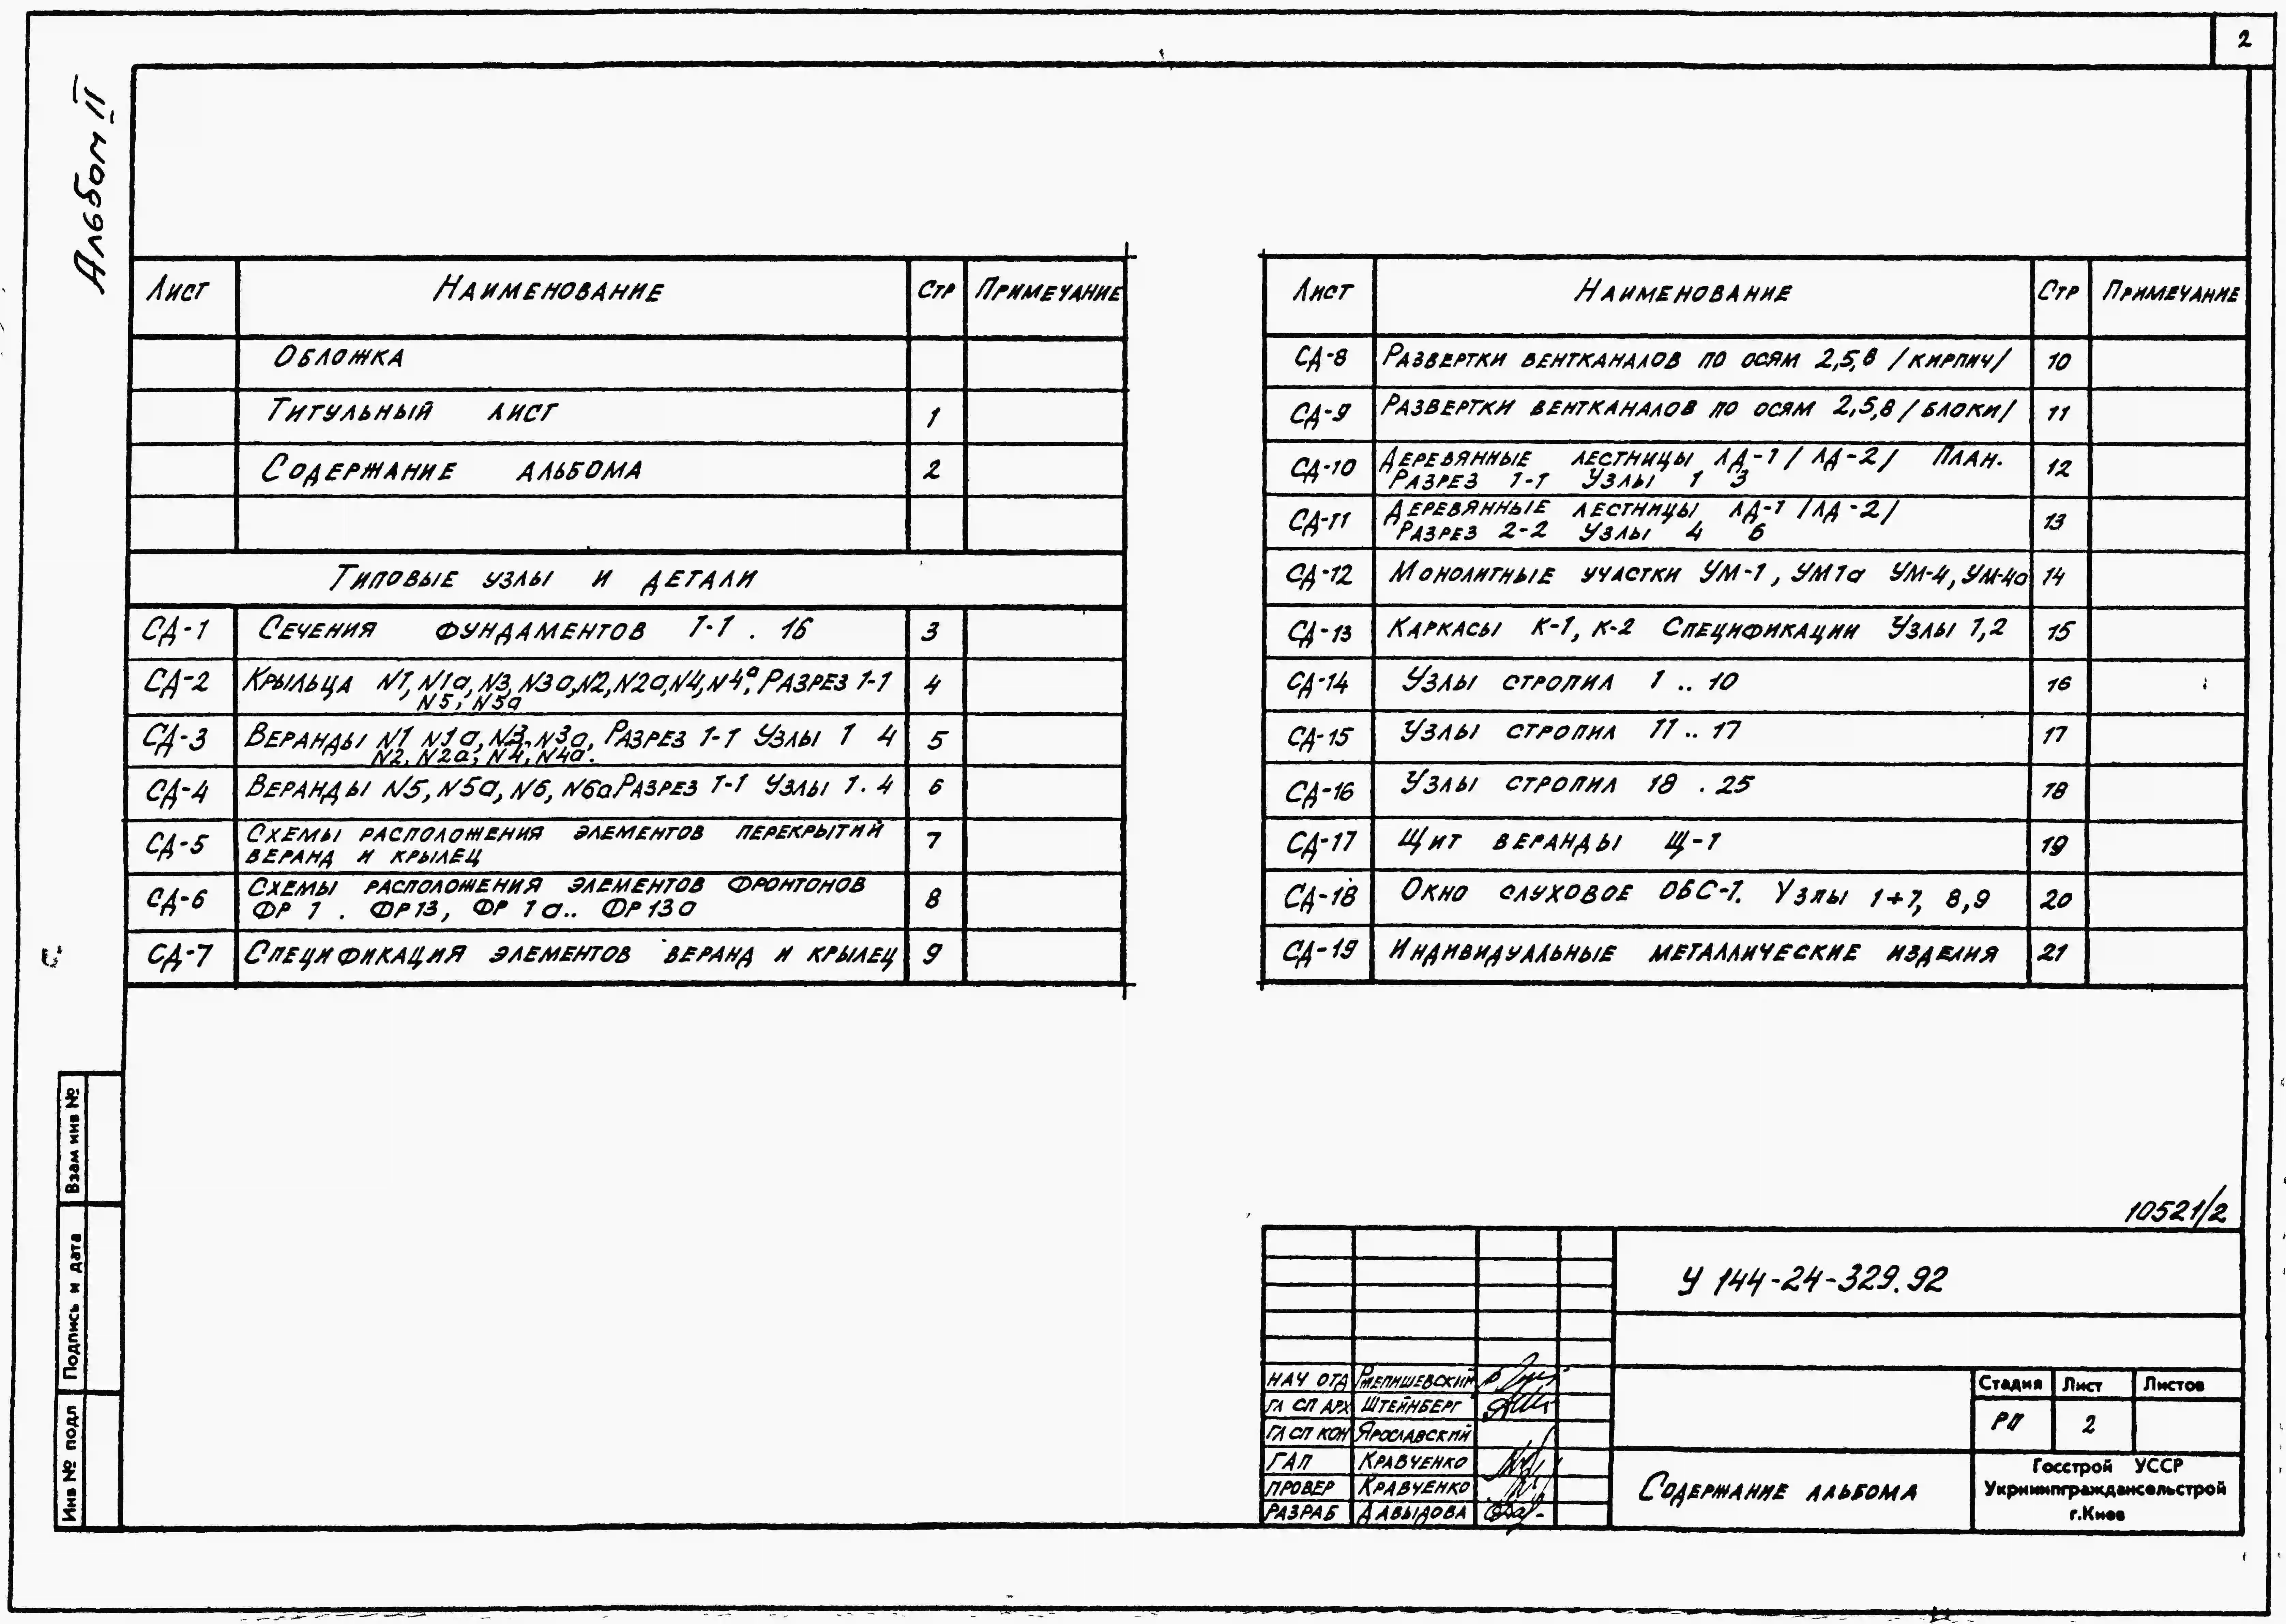 2
Альбом II
Лист Наименование Стр Примечание
Обложка
Титульный лист 1
Содержание альбома 2
Типовые узлы и детали
СД-1 Сечения фундаментов 1-1 . 16 3
СД-2 Крыльца N1, N1а, N3, N3а, N2, N2а, N4, N4а, Разрез 1-1 4
N5, N5а
СД-3 Веранды N1 N1а, N3, N3а, Разрез 1-1 Узлы 1 4 5
N2, N2а, N4, N4а.
СД-4 Веранды N5, N5а, N6, N6а Разрез 1-1 Узлы 1 . 4 6
СД-5 Схемы расположения элементов перекрытий 7
веранд и крылец
СД-6 Схемы расположения элементов фронтонов 8
ФР 1 . ФР13, ФР 1а.. ФР13а
СД-7 Спецификация элементов веранд и крылец 9
Лист Наименование Стр Примечание
СД-8 Развертки вентканалов по осям 2,5,8 /кирпич/ 10
СД-9 Развертки вентканалов по осям 2,5,8 /блоки/ 11
СД-10 Деревянные лестницы ЛД-1 /ЛД-2/ План. 12
Разрез 1-1 Узлы 1 3
СД-11 Деревянные лестницы ЛД-1 /ЛД-2/ 13
Разрез 2-2 Узлы 4 6
СД-12 Монолитные участки УМ-1, УМ1а УМ-4, УМ-4а 14
СД-13 Каркасы К-1, К-2 Спецификации Узлы 1,2 15
СД-14 Узлы стропил 1 .. 10 16
СД-15 Узлы стропил 11 .. 17 17
СД-16 Узлы стропил 18 . 25 18
СД-17 Щит веранды Щ-1 19
СД-18 Окно слуховое ОБС-1. Узлы 1÷7, 8,9 20
СД-19 Индивидуальные металлические изделия 21
Взам инв №
Подпись и дата
Инв № подл
10521/2
У 144-24-329.92
НАЧ ОТД
ГЛ СП АРХ Штейнберг
ГЛ СП КОН Ярославский
ГАП Кравченко
ПРОВЕР Кравченко
РАЗРАБ Давыдова
Стадия Лист Листов
РП 2
Содержание альбома
Госстрой УССР
Укрниипграждансельстрой
г.Киев